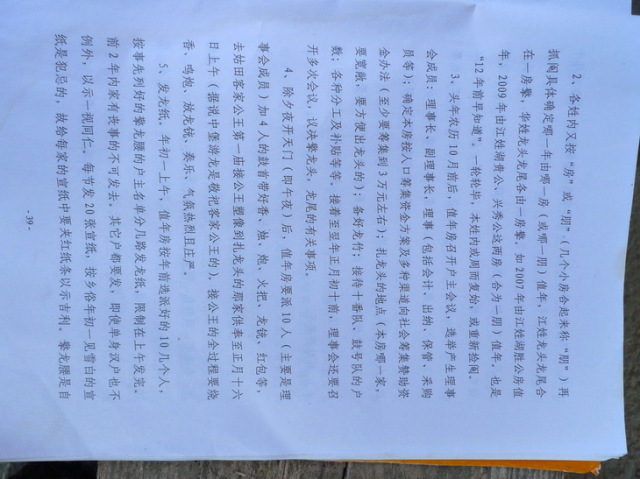 2、各姓内又按“房”或“朋”（几个小房合起来称“朋”）再
抓阄具体确定哪一年由哪一房（或哪一朋）值年，江姓龙头龙尾合
在一房擎，华姓龙头龙尾各由一房擎。如2007年由江姓湖胜公房值
年，2009年由江姓湖贵公、兴秀公这两房（合为一朋）值年，也是
“12年前早知道”。一轮轮毕，本姓内或周而复始，或重新捡阄。
3、头年农历10月前后，值年房召开户主会议，选举产生理事
会成员：理事长、副理事长，理事（包括会计、出纳、保管、采购
员等）；确定本房按人口筹集资金方案及多种渠道向社会筹集赞助资
金办法（至少要筹集到3万元左右）；扎龙头的地点（本房哪一家，
要宽敞，要方便出龙头的）；备好龙竹；接待十番队、鼓号队的户
数；各种分工及补贴等等。接着至翌年正月初十前，理事会还要召
开多次会议，议决擎龙头、龙尾的有关事项。
4、除夕夜开天门（即午夜）后，值年房要派10人（主要是理
事会成员）加4人的鼓首带好香、烛、炮、火把、龙铳、红包等，
去姑田客家公王第一庙接公王塑像到扎龙头的那家供奉至正月十六
日上午（据说中堡游龙是敬祀客家公王的）。接公王的全过程要烧
香、鸣炮、放龙铳、奏乐，气氛热烈且庄严。
5、发龙纸。年初一上午，值年房按年前选派好的10几个人，
按事先列好的擎龙腰的户主名单分几路发龙纸，限制在上午发完。
前2年内家有丧事的不可发去，其它户都要发，即使单身汉户也不
例外，以示一视同仁。每节发20张宣纸，按乡俗年初一见雪白的宣
纸是犯忌的，故给每家的宣纸中要夹红纸条以示吉利。擎龙腰是自
-39-